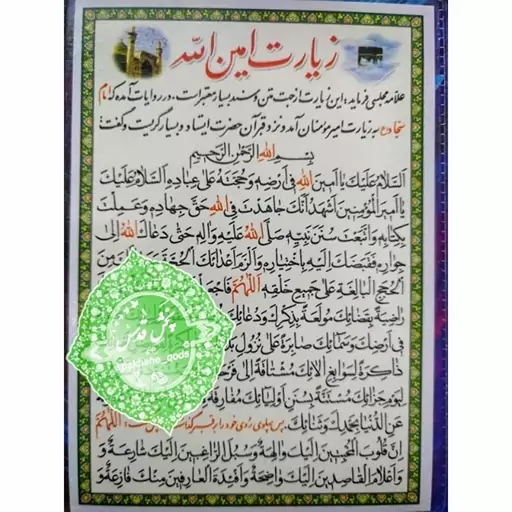 زیارت امین الله
علامه مجلسی فرماید: این زیارت از جهت متن و سند بسیار معتبر است. در روایات آمده که امام
سجاد(ع) به زیارت امیرمؤمنان آمد و نزد قبر آن حضرت ایستاد و بسیار گریست و گفت:
بِسْمِ اللهِ الرَّحْمٰنِ الرَّحیمِ
اَلسَّلامُ عَلَیْکَ یا اَمینَ اللهِ فی اَرْضِهِ وَ حُجَّتَهُ عَلی عِبادِهِ اَلسَّلامُ عَلَیْکَ
یا اَمیرَ الْمُؤْمِنینَ اَشْهَدُ اَنَّکَ جاهَدْتَ فِی اللهِ حَقَّ جِهادِهِ وَ عَمِلْتَ
بِکِتابِهِ وَ اتَّبَعْتَ سُنَنَ نَبِیِّهِ صَلَّی اللهُ عَلَیْهِ وَ الِهِ حَتّی دَعاکَ اللهُ اِلی
جِوارِهِ فَقَبَضَکَ اِلَیْهِ بِاخْتِیارِهِ وَ اَلْزَمَ اَعْدائَکَ الْحُجَّةَ
الْحُجَجِ الْبالِغَةِ عَلی جَمیعِ خَلْقِهِ اَللّهُمَّ
راضِیَةً بِقَضائِکَ مُولَعَةً بِذِکْرِکَ وَ دُعائِکَ
فی اَرْضِکَ وَ سَمائِکَ صابِرَةً عَلی نُزُولِ
ذاکِرَةً لِسَوابِغِ الائِکَ مُشْتاقَةً اِلی
لِیَوْمِ جَزائِکَ مُسْتَنَّةً بِسُنَنِ اَوْلِیائِکَ مُفارِقَةً
عَنِ الدُّنْیا بِحَمْدِکَ وَ ثَنائِکَ. پس پهلوی روی خود را بر قبر گذاشت اَللّهُمَّ
اِنَّ قُلُوبَ الْمُخْبِتینَ اِلَیْکَ والِهَةٌ وَ سُبُلَ الرّاغِبینَ اِلَیْکَ شارِعَةٌ وَ
وَ اَعْلامَ الْقاصِدینَ اِلَیْکَ واضِحَةٌ وَ اَفْئِدَةَ الْعارِفینَ مِنْکَ فازِعَةٌ وَ
پخش قدس
@pakhshe_qods